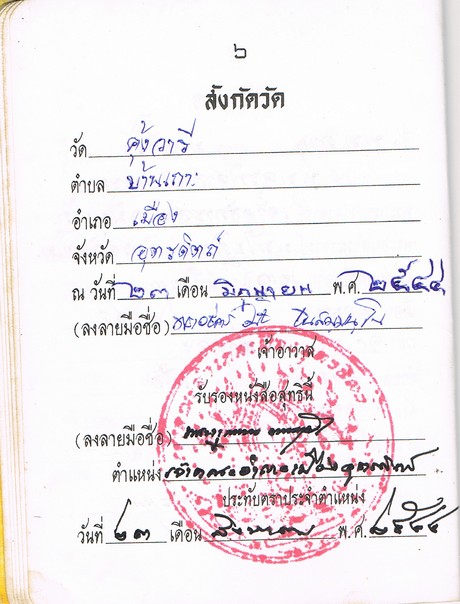 ๖
สังกัดวัด
วัด คุ้งวารี
ตำบล บ้านเกาะ
อำเภอ เมือง
จังหวัด อุตรดิตถ์
ณ วันที่ ๒๓ เดือน มิถุนายน พ.ศ. ๒๕๔๔
(ลงลายมือชื่อ)
เจ้าอาวาส
รับรองหนังสือสุทธินี้
(ลงลายมือชื่อ)
ตำแหน่ง เจ้าคณะอำเภอเมืองอุตรดิตถ์
ประทับตราประจำตำแหน่ง
วันที่ ๒๓ เดือน สิงหาคม พ.ศ. ๒๕๔๔